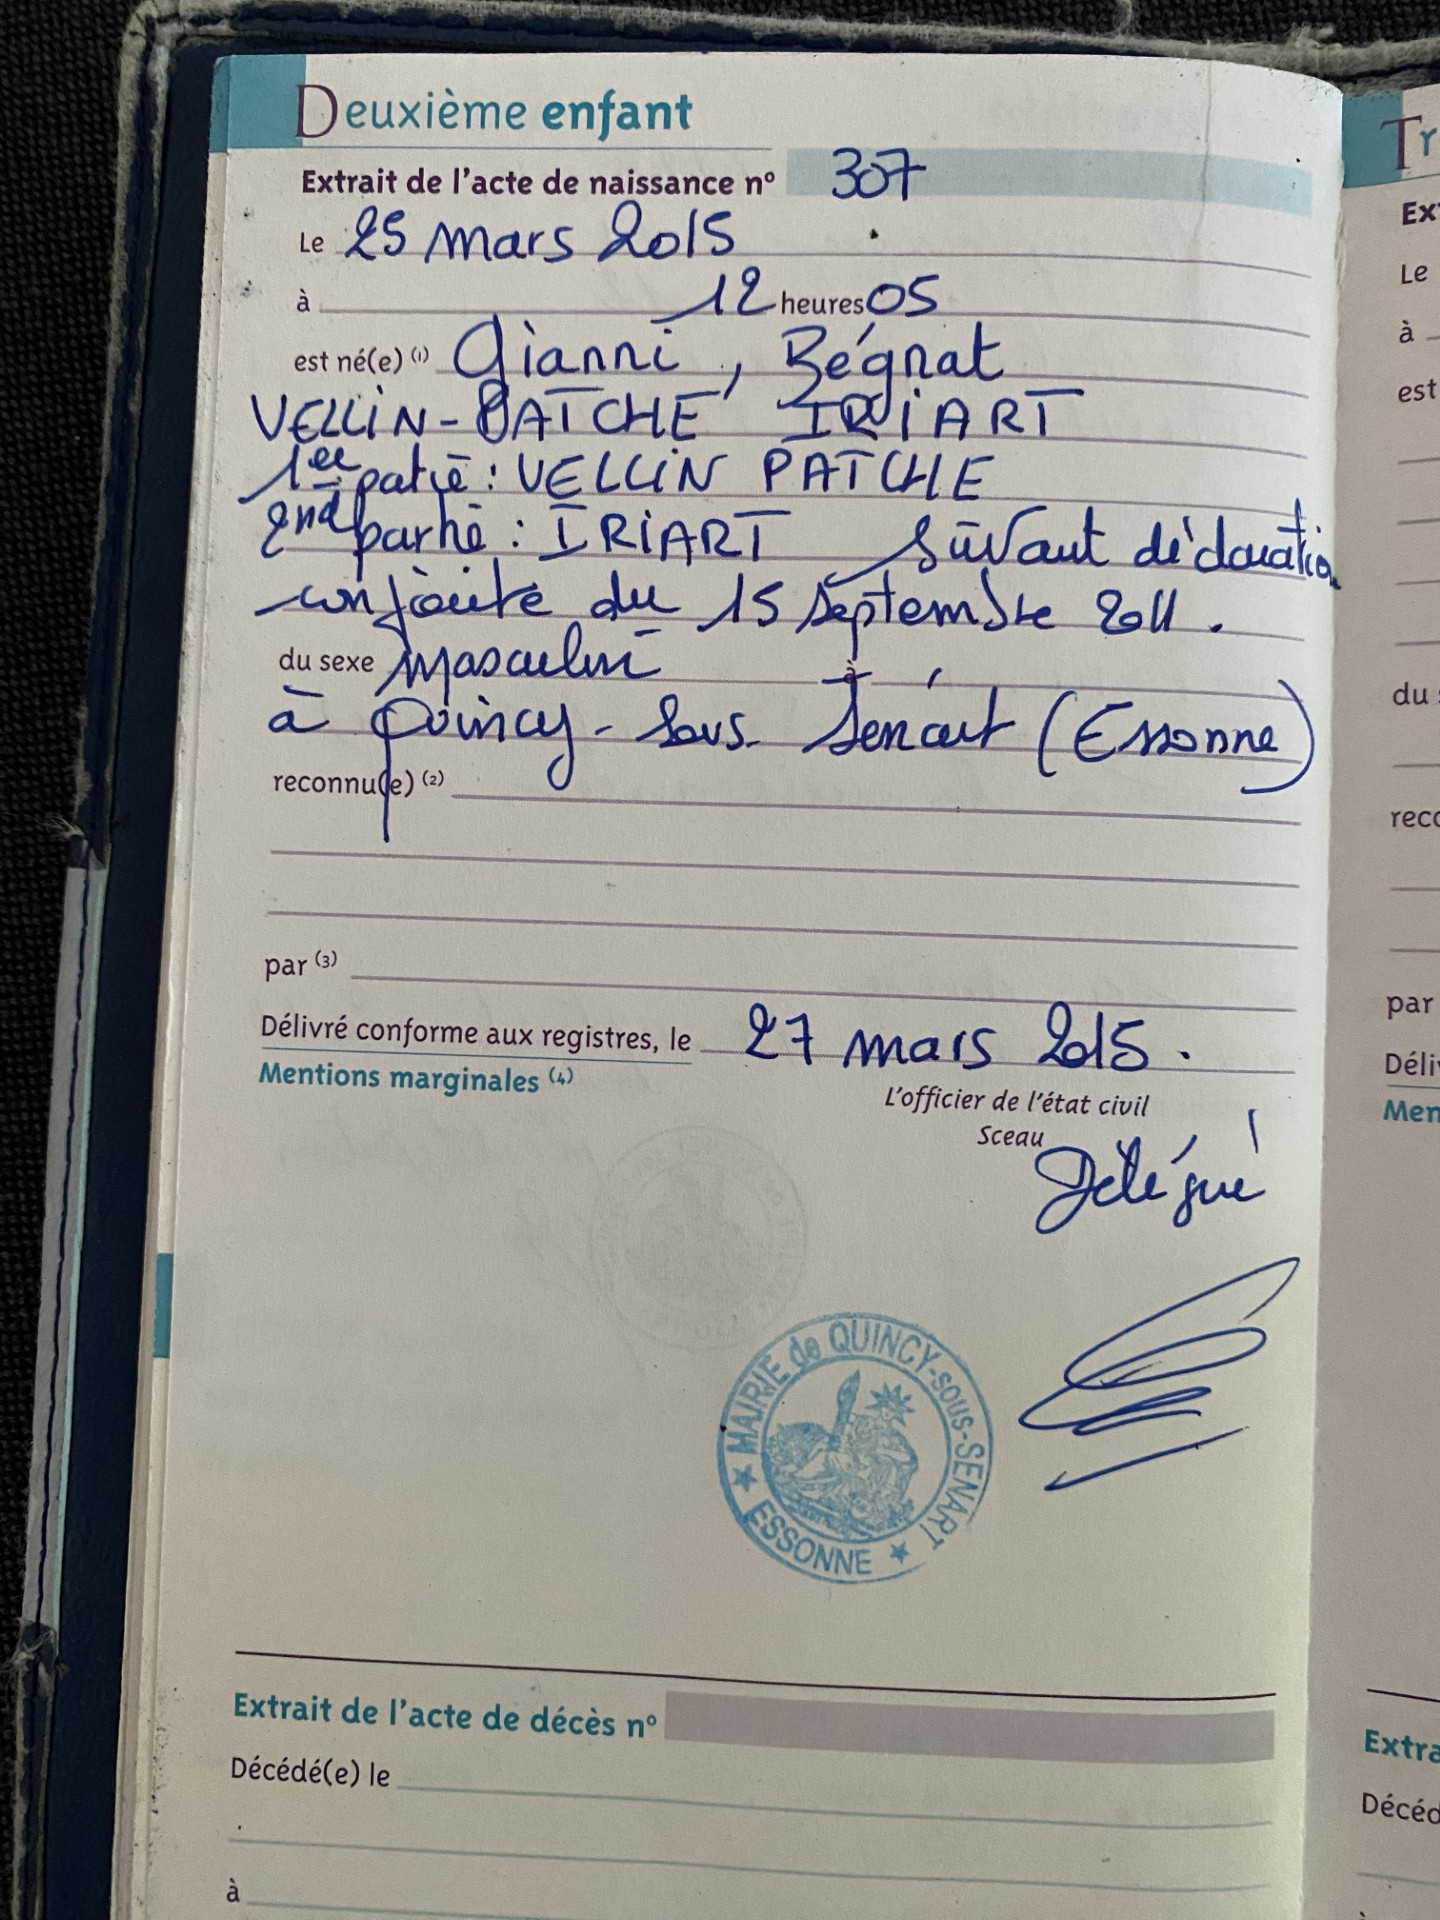 Deuxième enfant
Extrait de l'acte de naissance nº 307
Le 25 mars 2015
à 12 heures 05
est né(e) (1) Gianni, Bégnat
VELLIN-PATCHE IRIART
1ere partie : VELLIN PATCHE
2nd partie : IRIART suivant déclaration
conjointe du 15 septembre 2011.
du sexe masculin à
à Quincy-sous-Sénart (Essonne)
reconnu(e) (2)
par (3)
Délivré conforme aux registres, le 27 mars 2015.
Mentions marginales (4)
L'officier de l'état civil
Sceau
Délégué
MAIRIE de QUINCY-sous-SENART
ESSONNE
Extrait de l'acte de décès nº
Décédé(e) le
à
Tr
Ex
Le
à
est
du
reco
par
Déli
Men
Extra
Décéd